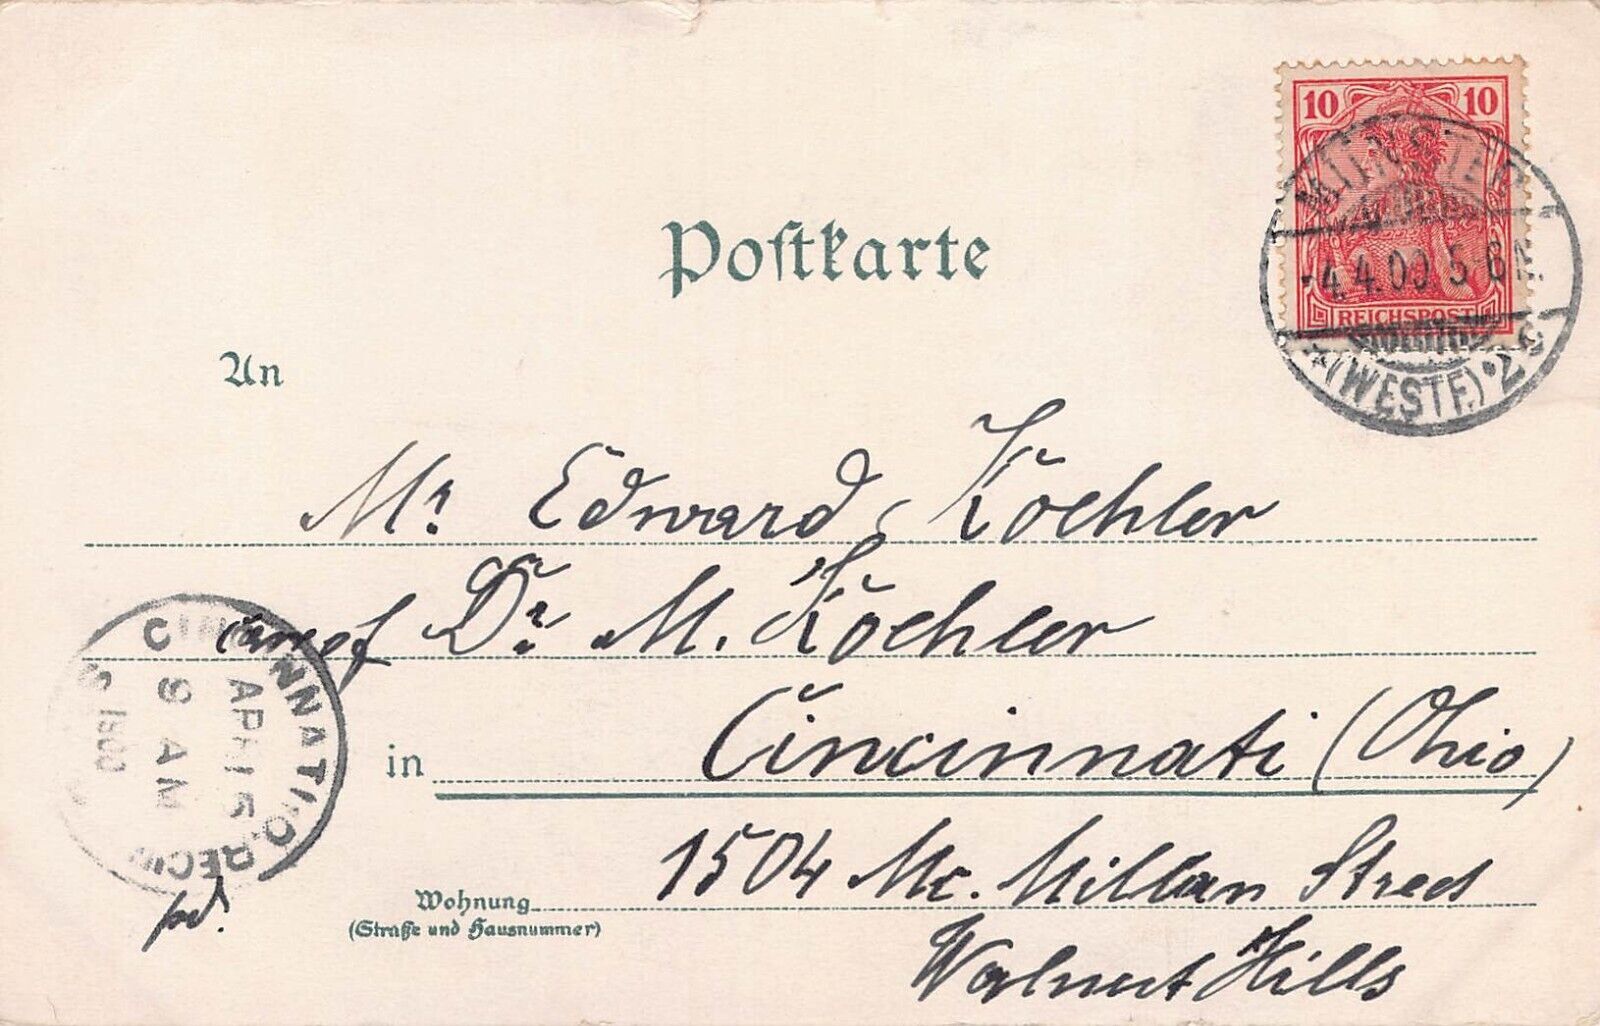 10 10
REICHSPOST
MÜNSTER
4.4.00 5-6 N
*(WESTF.)•2c
Postkarte
An
Mr. Edward Koehler
Dr. M. Koehler
in Cincinnati (Ohio)
1504 Mc. Millan Street
Wohnung
(Straße und Hausnummer)
Walnut Hills
CINCINNATI, O. REC'D
APR 15
9 AM
1900